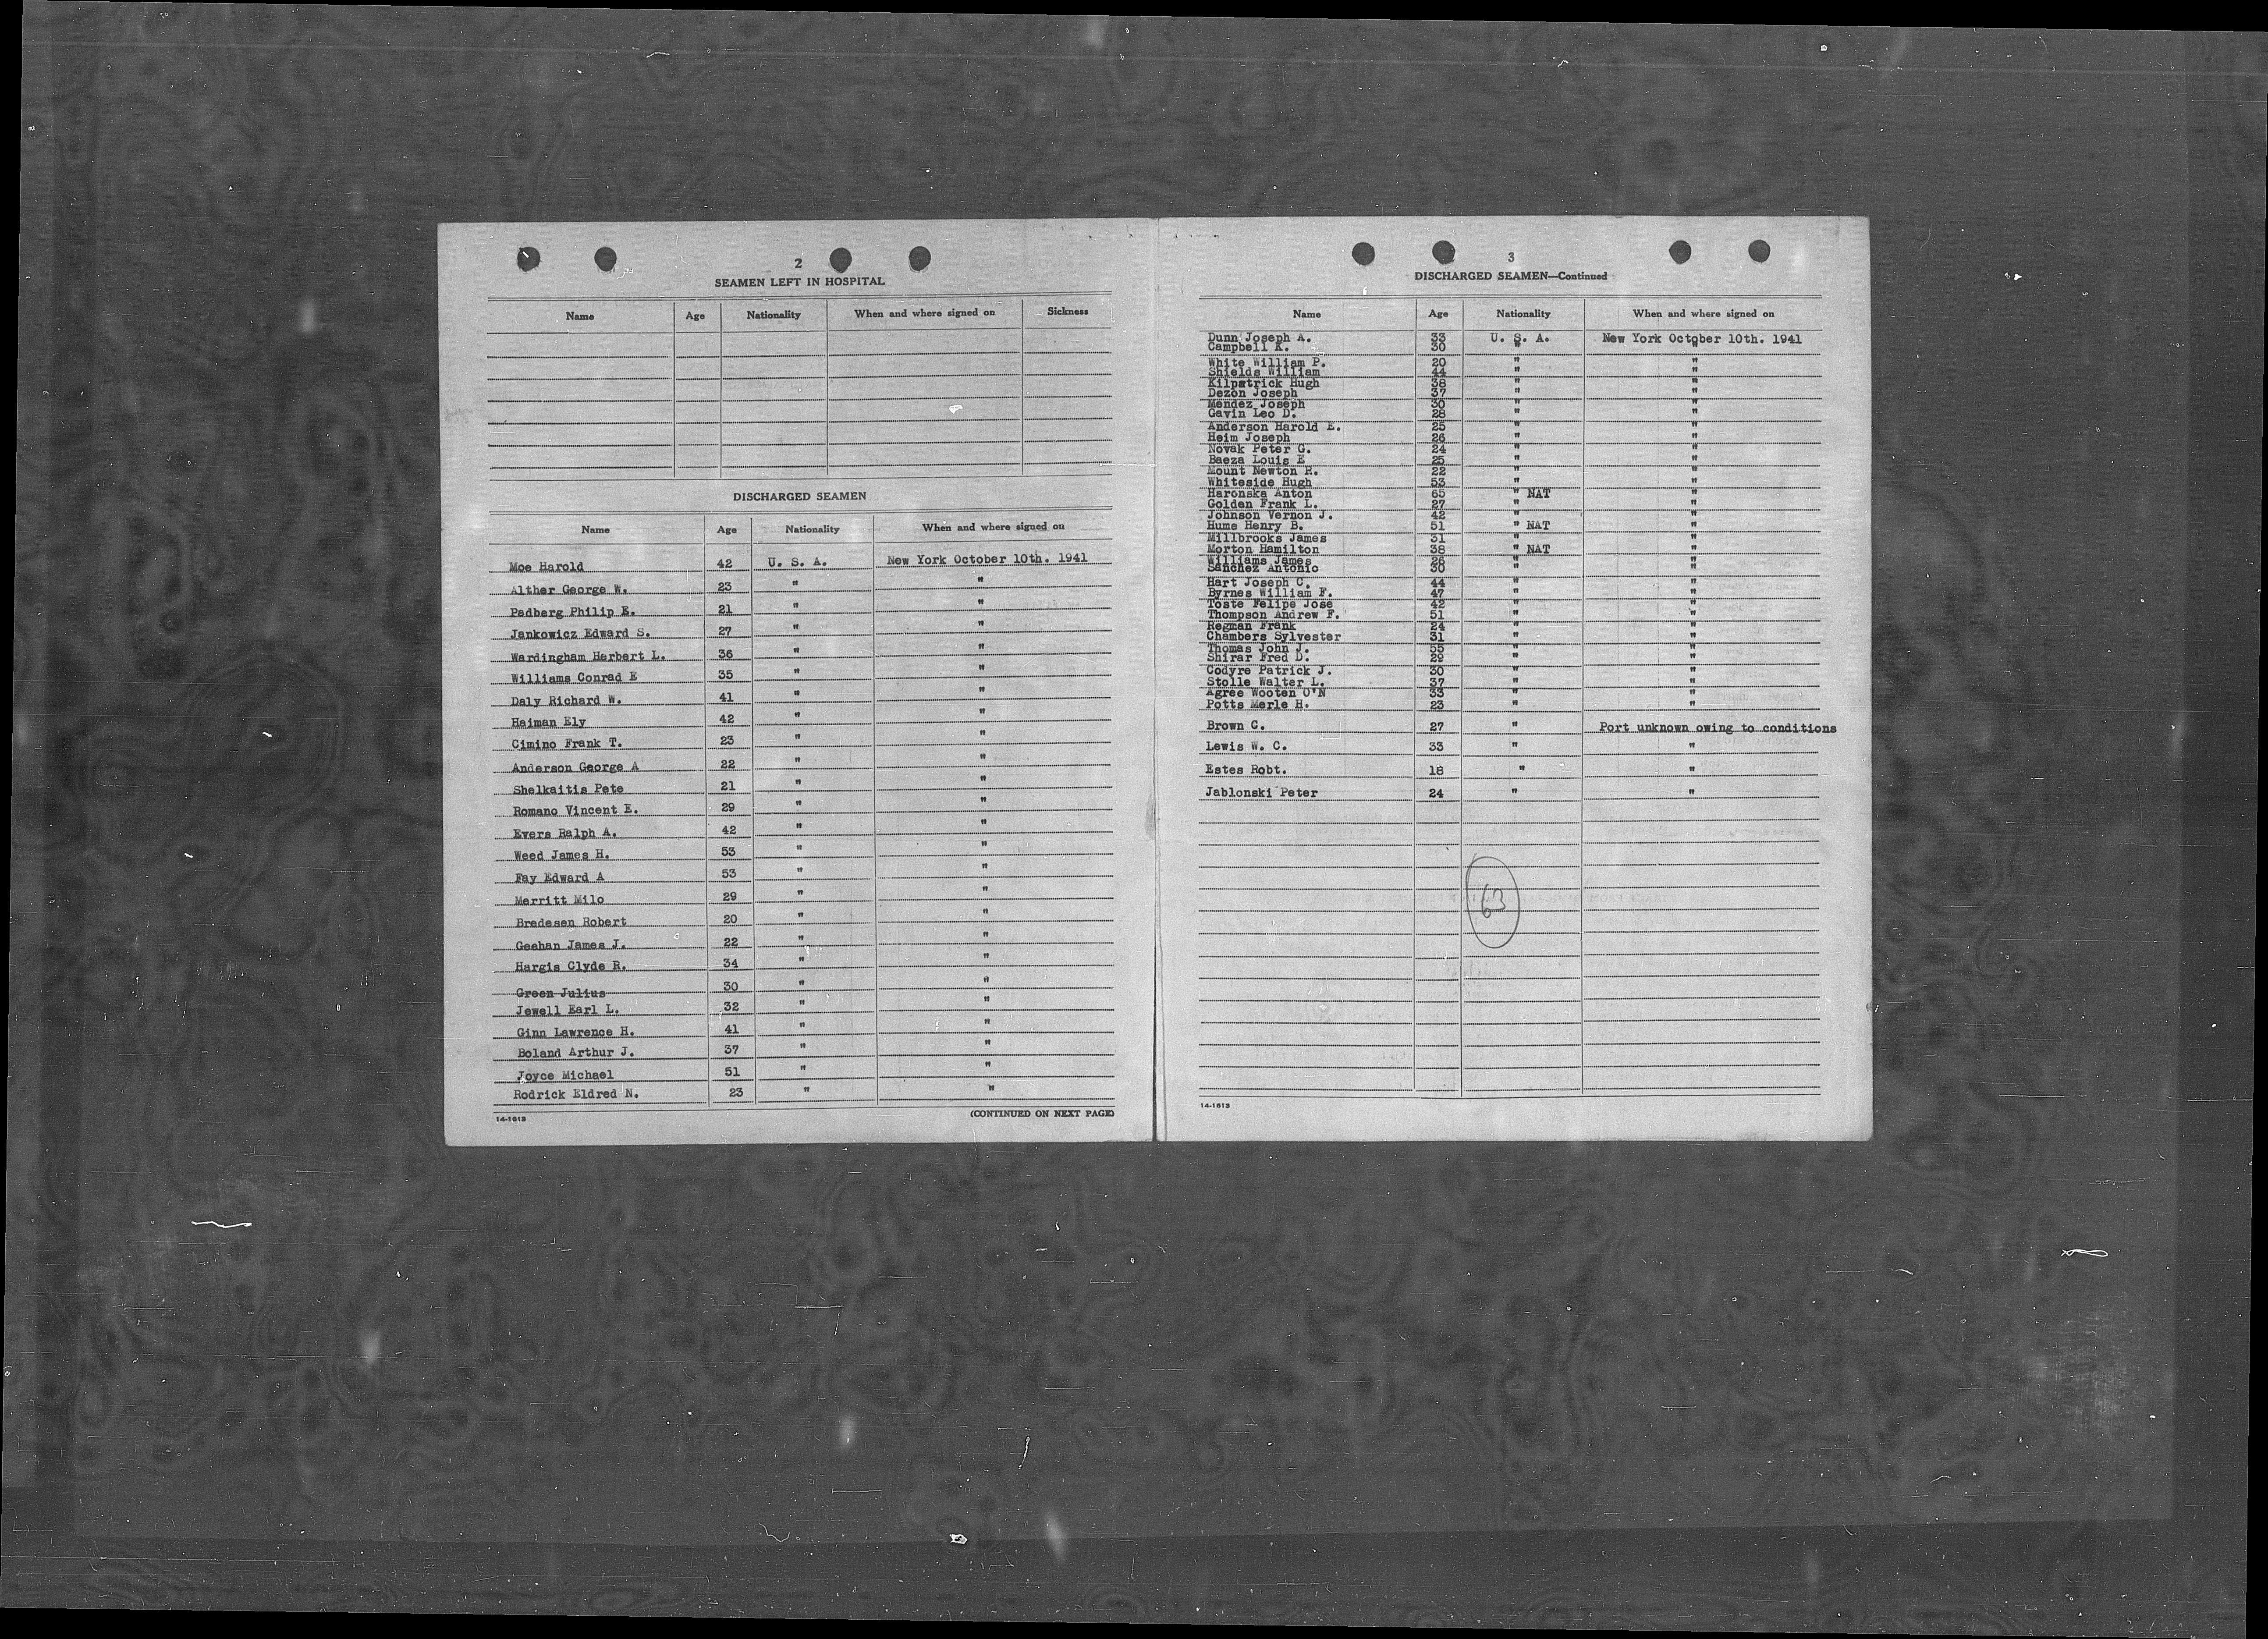 2
SEAMEN LEFT IN HOSPITAL
Name Age Nationality When and where signed on Sickness
DISCHARGED SEAMEN
Name Age Nationality When and where signed on
Moe Harold 42 U. S. A. New York October 10th. 1941
Alther George W. 23 " "
Padberg Philip E. 21 " "
Jankowicz Edward S. 27 " "
Wardingham Herbert L. 36 " "
Williams Conrad E 35 " "
Daly Richard W. 41 " "
Haiman Ely 42 " "
Cimino Frank T. 23 " "
Anderson George A 22 " "
Shelkaitis Pete 21 " "
Romano Vincent E. 29 " "
Evers Ralph A. 42 " "
Weed James H. 53 " "
Fay Edward A 53 " "
Merritt Milo 29 " "
Bredesen Robert 20 " "
Geehan James J. 22 " "
Hargis Clyde R. 34 " "
Green Julius 30 " "
Jewell Earl L. 32 " "
Ginn Lawrence H. 41 " "
Boland Arthur J. 37 " "
Joyce Michael 51 " "
Rodrick Eldred N. 23 " "
14-1613 (CONTINUED ON NEXT PAGE)
3
DISCHARGED SEAMEN—Continued
Name Age Nationality When and where signed on
Dunn Joseph A. 33 U. S. A. New York October 10th. 1941
Campbell K. 30 " "
White William P. 20 " "
Shields William 44 " "
Kilpatrick Hugh 38 " "
Dezon Joseph 37 " "
Mendez Joseph 30 " "
Gavin Leo D. 28 " "
Anderson Harold E. 25 " "
Heim Joseph 26 " "
Novak Peter G. 24 " "
Baeza Louis E 25 " "
Mount Newton R. 22 " "
Whiteside Hugh 53 " "
Haronska Anton 65 " NAT "
Golden Frank L. 27 " "
Johnson Vernon J. 42 " "
Hume Henry B. 51 " NAT "
Millbrooks James 31 " "
Morton Hamilton 38 " NAT "
Williams James 26 " "
Sanchez Antonio 30 " "
Hart Joseph C. 44 " "
Byrnes William F. 47 " "
Toste Felipe Jose 42 " "
Thompson Andrew F. 51 " "
Regman Frank 24 " "
Chambers Sylvester 31 " "
Thomas John J. 55 " "
Shirar Fred D. 29 " "
Codyre Patrick J. 30 " "
Stolle Walter L. 37 " "
Agree Wooten O'N 33 " "
Potts Merle H. 23 " "
Brown C. 27 " Port unknown owing to conditions
Lewis W. C. 33 " "
Estes Robt. 18 " "
Jablonski Peter 24 " "
63
14-1613